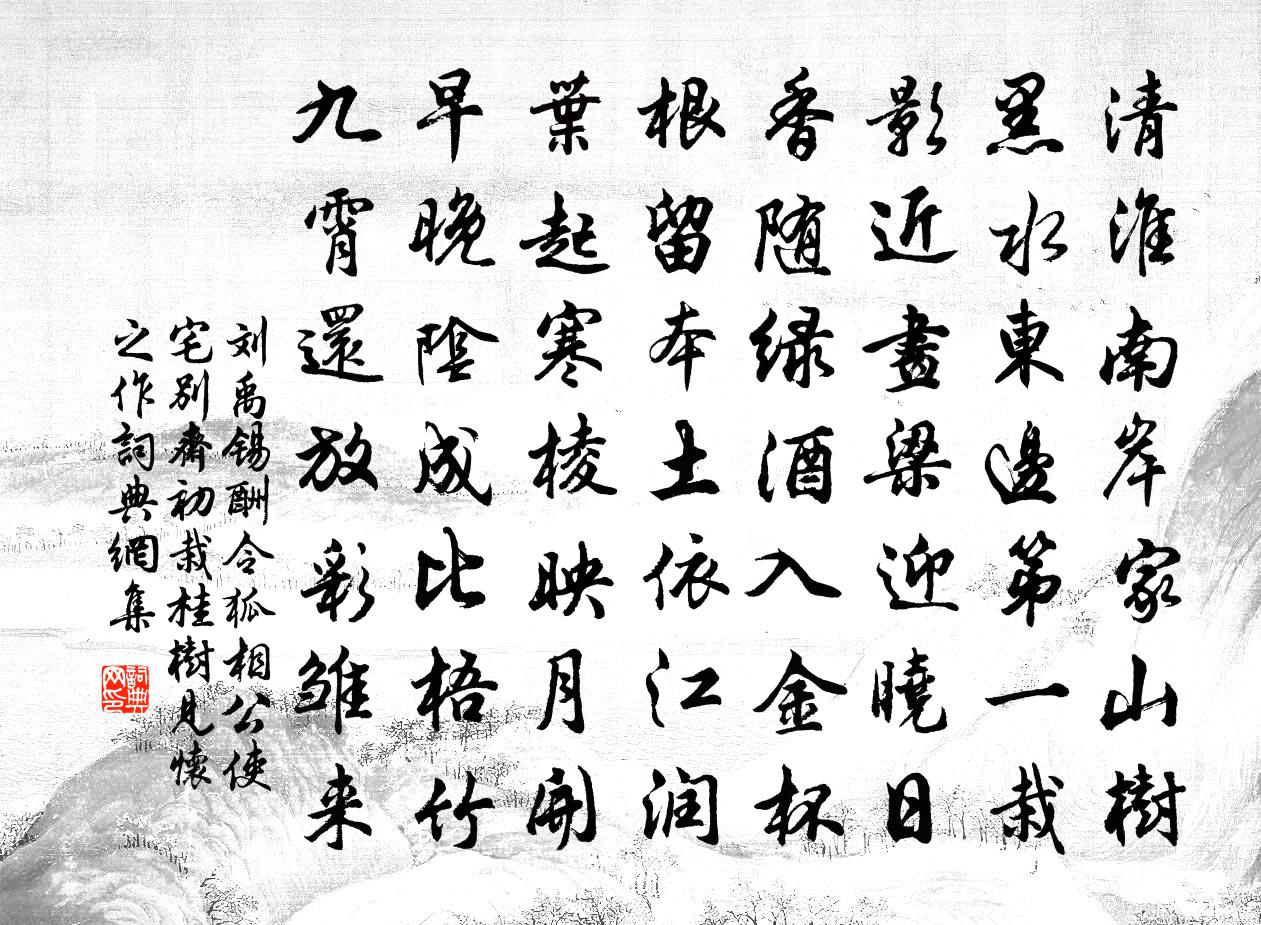 清淮南岸家山樹
黑水東邊第一栽
影近畫梁迎曉日
香随緑酒入金杯
根留本土依江润
葉起寒棱映月開
早晚陰成比梧竹
九霄還放彩雏来
刘禹锡酬令狐相公使
宅别齋初栽桂樹見懷
之作詞典網集
詞典
网印